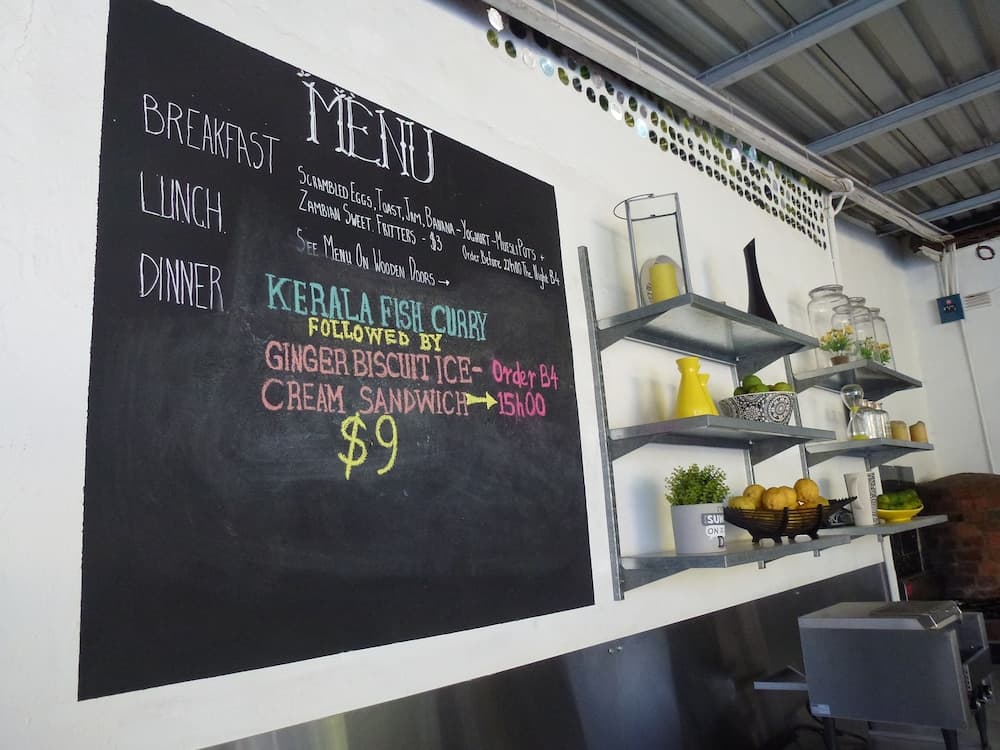 MENU
BREAKFAST
SCRAMBLED EGGS, TOAST, JAM, BANANA - YOGHURT - MUESLI POTS +
ZAMBIAN SWEET FRITTERS - $3
Order Before 22h00 The Night B4
LUNCH.
SEE MENU ON WOODEN DOORS →
DINNER
KERALA FISH CURRY
FOLLOWED BY
GINGER BISCUIT ICE-
CREAM SANDWICH →
Order B4
15h00
$9
SUN
ON
D